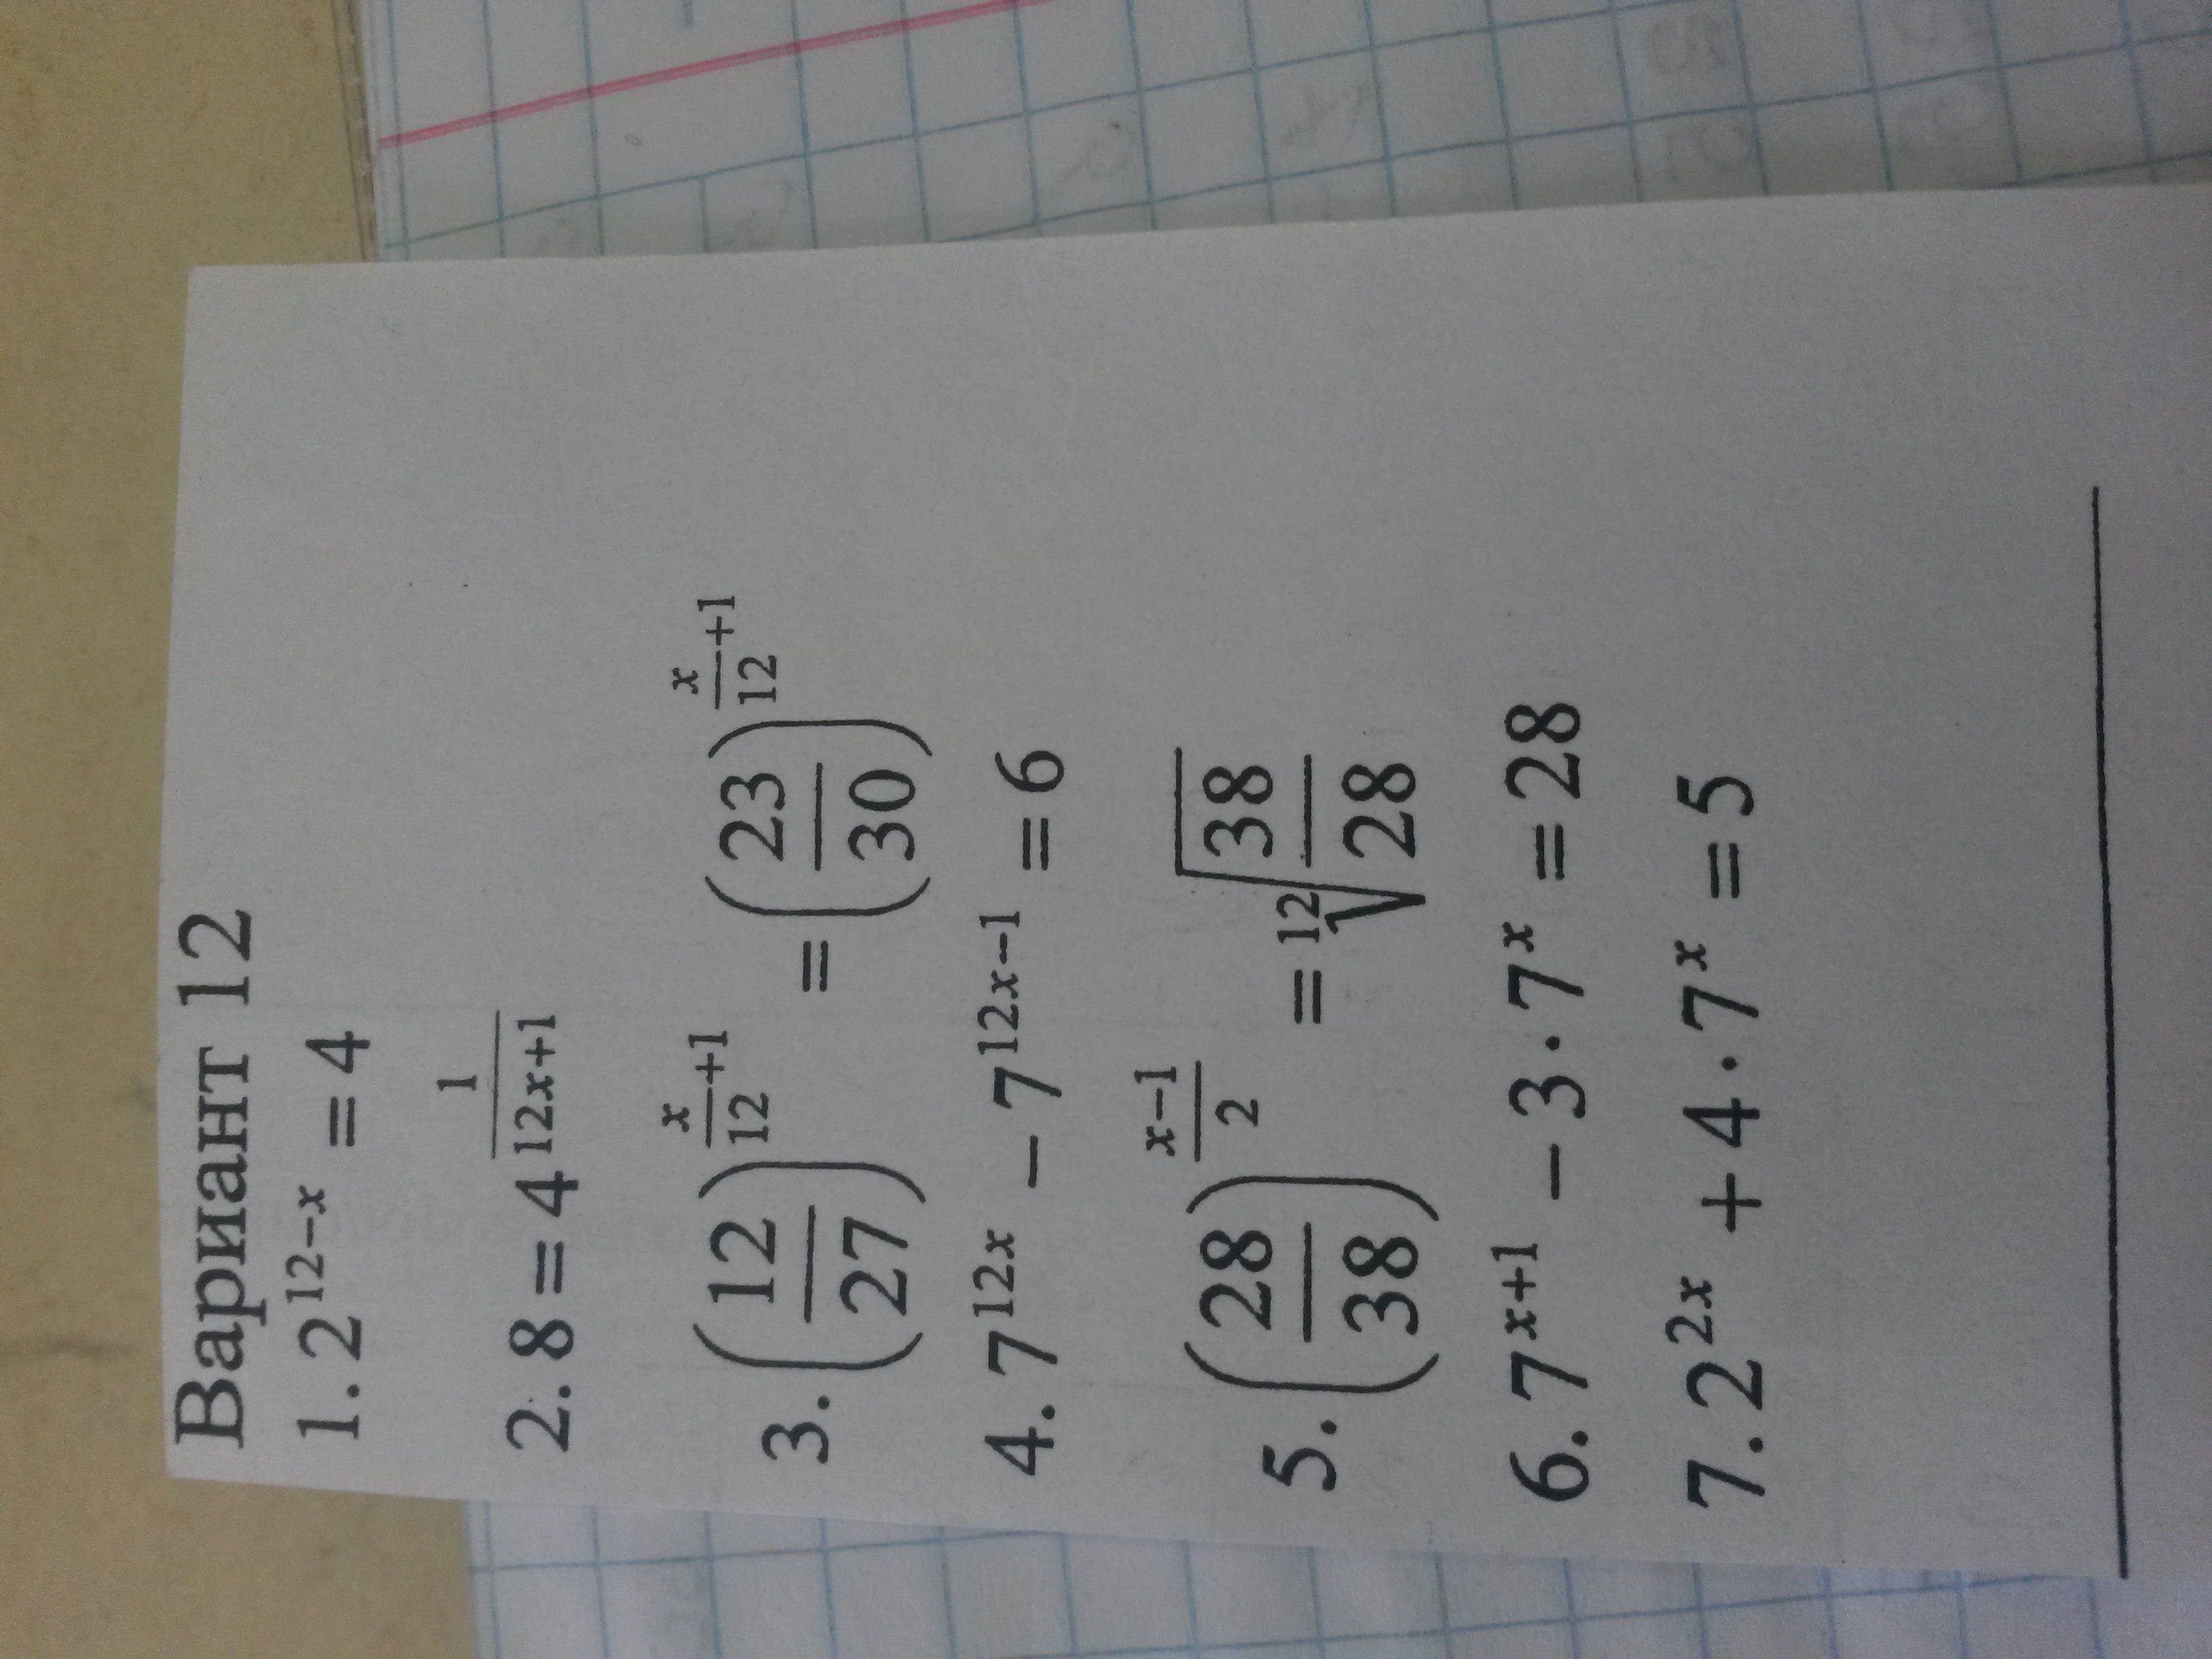 Вариант 12
1. 2^{12-x} = 4
2. 8 = 4^{\frac{1}{12x+1}}
3. \left(\frac{12}{27}\right)^{\frac{x}{12}+1} = \left(\frac{23}{30}\right)^{\frac{x}{12}+1}
4. 7^{12x} - 7^{12x-1} = 6
5. \left(\frac{28}{38}\right)^{\frac{x-1}{2}} = \sqrt[12]{\frac{38}{28}}
6. 7^{x+1} - 3 \cdot 7^{x} = 28
7. 2^{2x} + 4 \cdot 7^{x} = 5